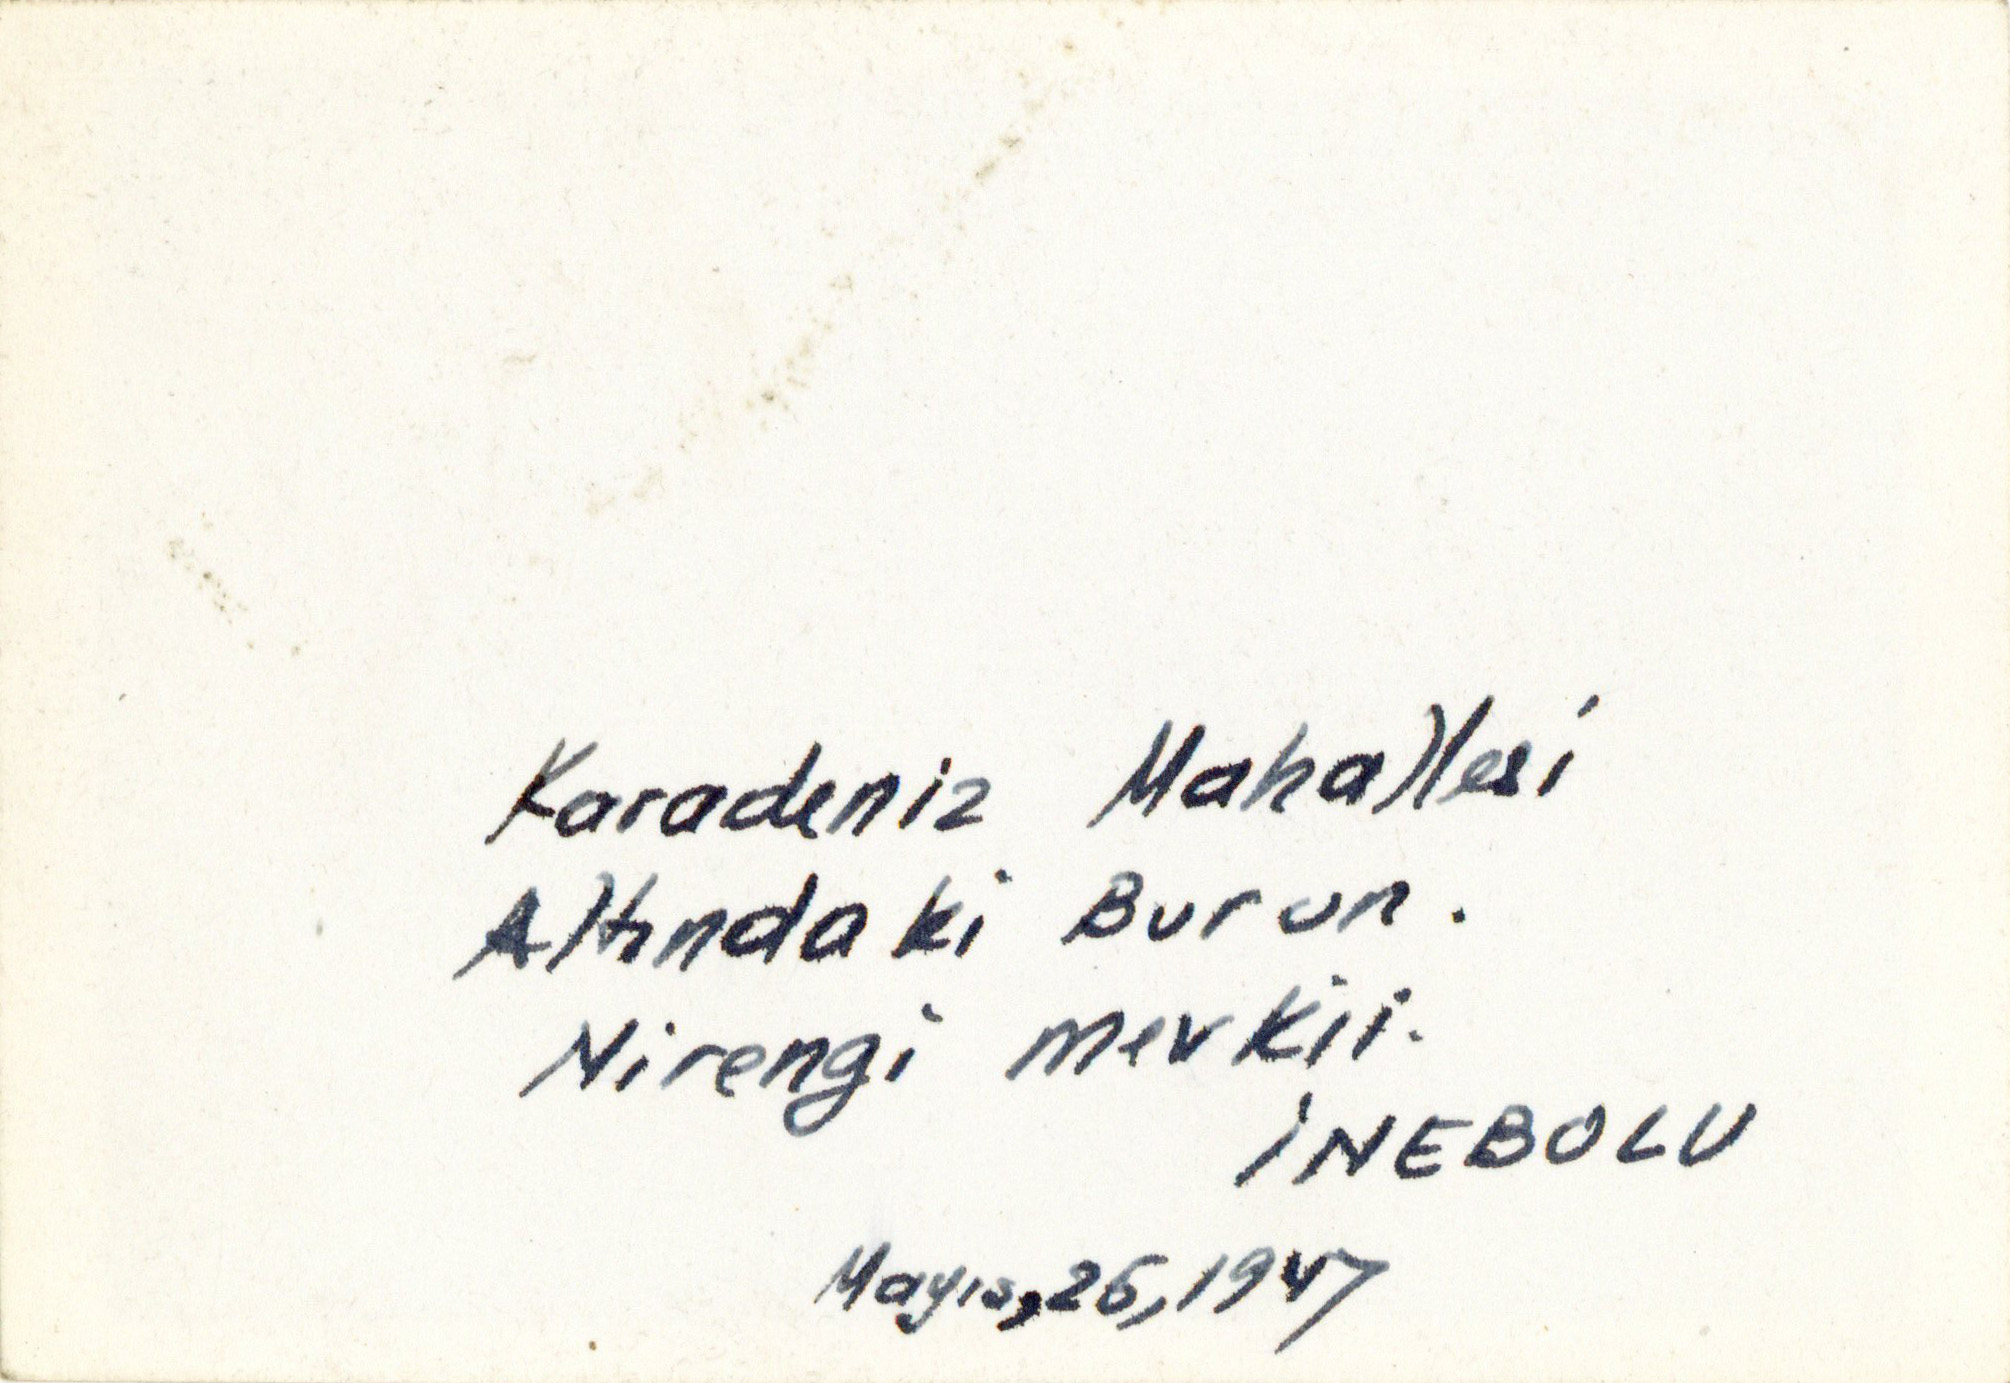 Karadeniz Mahallesi
Altındaki Burun.
Nirengi mevkii.
İNEBOLU
Mayıs, 26, 1947